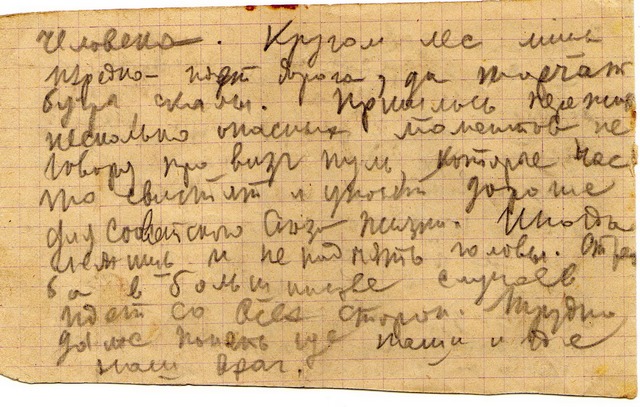 человека. Кругом лес лишь
изредка идет дорога, да торчат
бугра скалы. Пришлось пережи
несколько опасных моментов не
говоря про визг пуль, которые час
то свистят и уносят дорогие
для Советского Союза жизни. Иногда
лежишь и не поднять головы. Стрель
ба в большинстве случаев
идет со всех сторон. Трудно
даже понять где наши и где
наш враг.